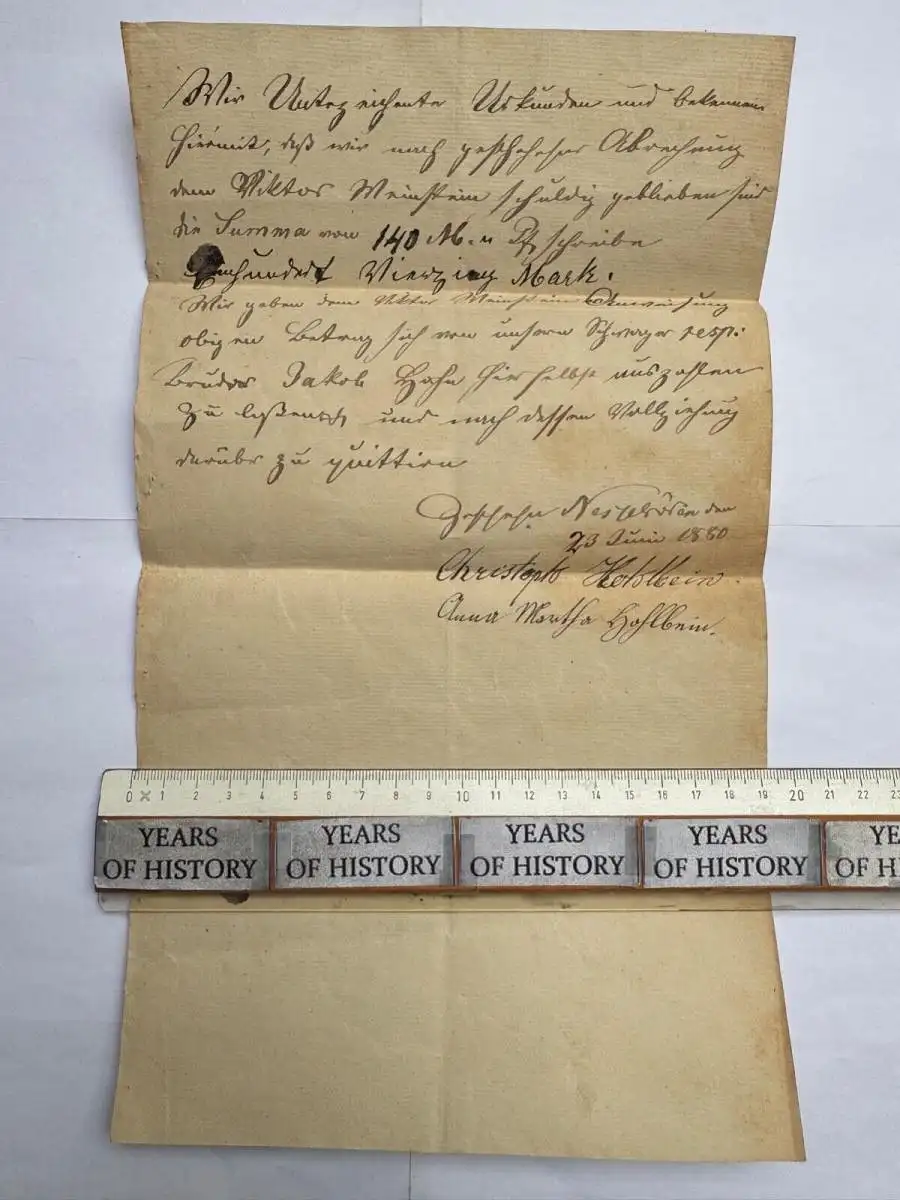 Wir Unterzeichente Urkunden und bekennen
hiermit, daß wir nach geschehener Abrechnung
dem Viktor Weinstein schuldig geblieben sind
die Summa von 140 M. schreibe
Einhundert Vierzig Mark.
Wir geben dem Viktor Weinstein Anweisung
obigen Betrag sich von unsern Schwager resp:
Bruder Jakob Hahn hierselbst auszahlen
zu laßen und nach dessen Vollziehung
darüber zu quittiren
Geschehn den
23 Juni 1880
Christoph Hohlbein.
Anna Martha Hohlbein.
0 1 2 3 4 5 6 7 8 9 10 11 12 13 14 15 16 17 18 19 20 21 22 23
YEARS OF HISTORY YEARS OF HISTORY YEARS OF HISTORY YEARS OF HISTORY YE
OF H